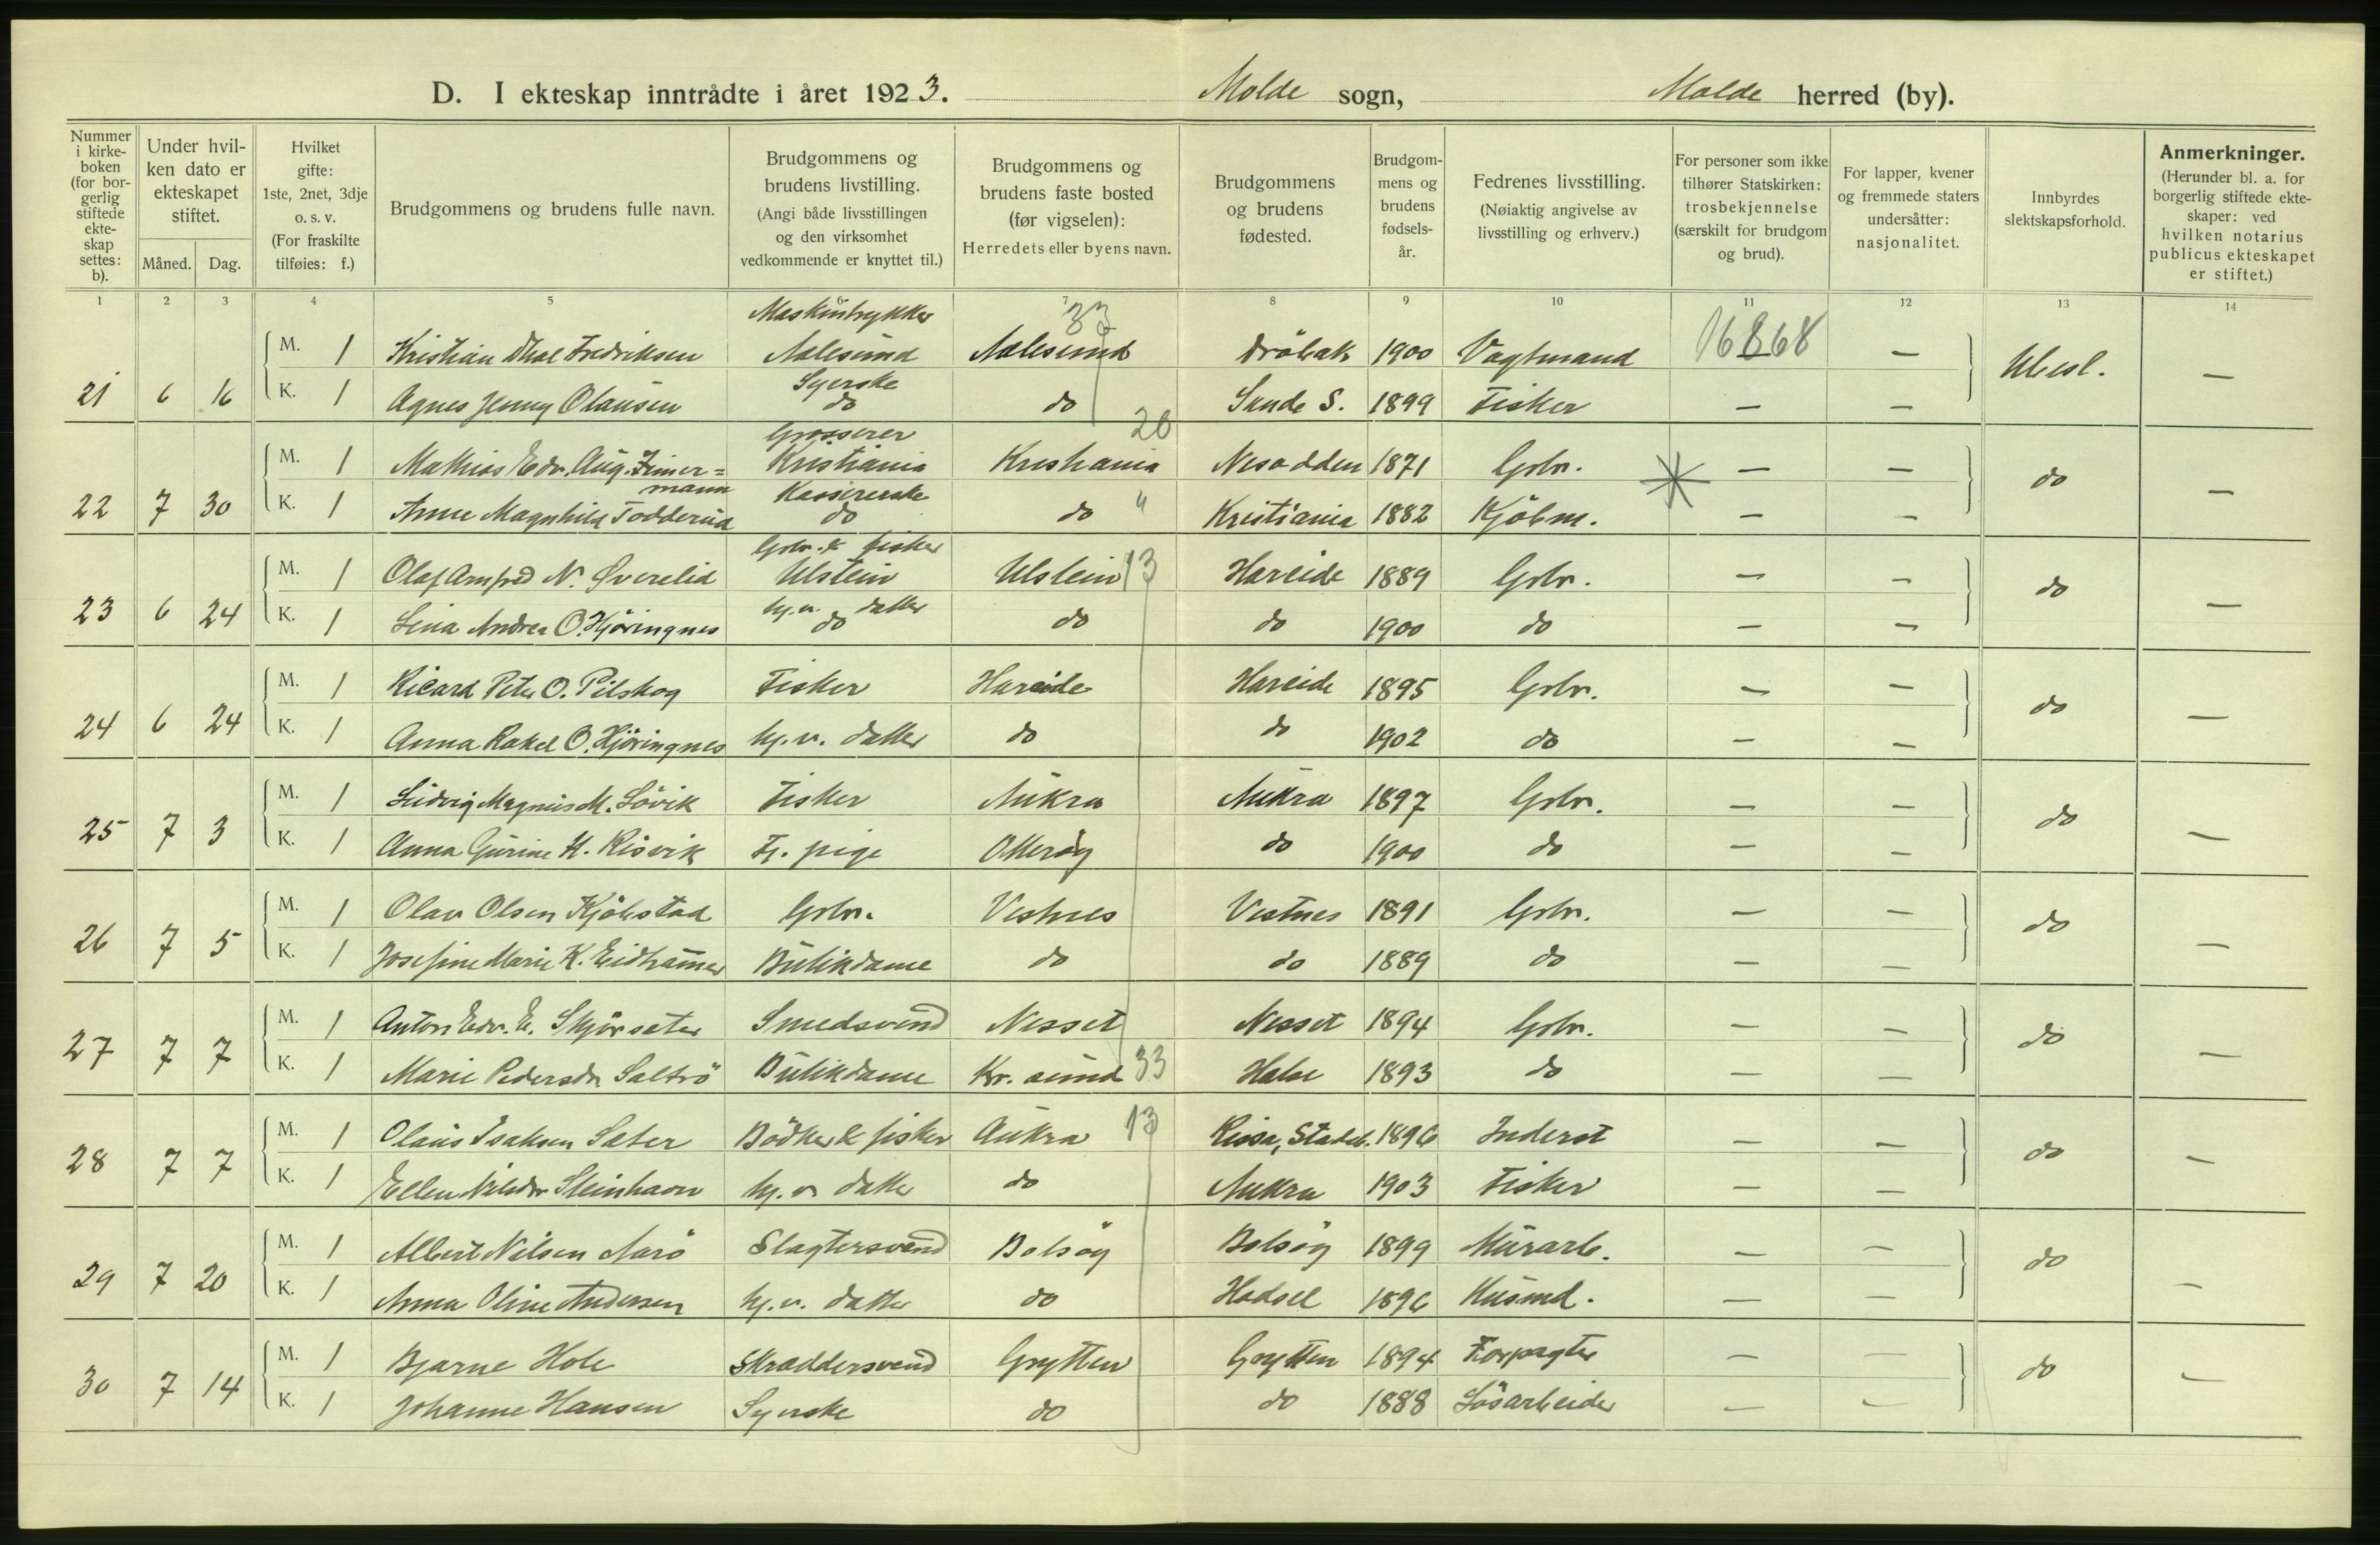 D. I ekteskap inntrådte i året 1923. Molde sogn, Molde herred (by).
Nummer i kirkeboken (for borgerlig stiftede ekteskap settes: b).
Under hvilken dato er ekteskapet stiftet.
Måned. Dag.
Hvilket gifte: 1ste, 2net, 3dje o. s. v. (For fraskilte tilføies: f.)
Brudgommens og brudens fulle navn.
Brudgommens og brudens livstilling. (Angi både livsstillingen og den virksomhet vedkommende er knyttet til.)
Brudgommens og brudens faste bosted (før vigselen): Herredets eller byens navn.
Brudgommens og brudens fødested.
Brudgommens og brudens fødselsår.
Fedrenes livsstilling. (Nøiaktig angivelse av livsstilling og erhverv.)
For personer som ikke tilhører Statskirken: trosbekjennelse (særskilt for brudgom og brud).
For lapper, kvener og fremmede staters undersåtter: nasjonalitet.
Innbyrdes slektskapsforhold.
Anmerkninger. (Herunder bl. a. for borgerlig stiftede ekteskaper: ved hvilken notarius publicus ekteskapet er stiftet.)
1 2 3 4 5 6 7 8 9 10 11 12 13 14
Maskintrykker 33
M. 1 Kristian Thal Fredriksen Aalesund Aalesund Dröbak 1900 Vagtmand 16868 —
21 6 16 Ubesl. —
Syerske
K. 1 Agnes Jenny Olausen do do Sande S. 1899 Fisker — —
Grosserer 20
M. 1 Mathias Edv. Aug. Zimer= Kristiania Kristiania Nesodden 1871 Gbr. — —
mann
22 7 30 do —
Kassererske
K. 1 Anne Magnhild Todderud do do " Kristiania 1882 Kjöbm. — —
Gbr. & fisker
M. 1 Olaf Arnfred N. Överelid Ulstein Ulstein 13 Hareide 1889 Gbr. — —
23 6 24 do —
hj.v. datter
K. 1 Lina Andrea O. Hjöringnes do do do 1900 do — —
M. 1 Ricard Peter O. Pilskog Fisker Hareide Hareide 1895 Gbr. — —
24 6 24 do —
K. 1 Anna Rakel O. Hjöringnes hj.v. datter do do 1902 do — —
M. 1 Ludvig Magnus M. Lövik Fisker Aukra Aukra 1897 Gbr. — —
25 7 3 do —
K. 1 Anna Gurine H. Risvik Tj. pige Otteröy do 1900 do — —
M. 1 Olav Olsen Kjöbstad Gbr. Vestnes Vestnes 1891 Gbr. — —
26 7 5 do —
K. 1 Josefine Marie K. Eidhammer Butikdame do do 1889 do — —
M. 1 Anton Edv. E. Skjörsæter Smedsvend Nesset Nesset 1894 Gbr. — —
27 7 7 do —
K. 1 Marie Pedersdr Saltrö Butikdame Kr. sund 33 Halse 1893 do — —
M. 1 Olaus Isaksen Sæter Bödker & fisker Aukra 13 Rissa, Stadsb. 1896 Inderst — —
28 7 7 do —
K. 1 Ellen Nilsdr Steinhavn hj.v. datter do Aukra 1903 Fisker — —
M. 1 Albert Nilsen Aarö Slagtersvend Bolsöy Bolsöy 1899 Murarb. — —
29 7 20 do —
K. 1 Anna Oline Andersen hj.v. datter do Hadsel 1896 Husmd. — —
M. 1 Bjarne Hole Skræddersvend Grytten Grytten 1894 Forpagter — —
30 7 14 do —
K. 1 Johanne Hansen Syerske do do 1888 Lösarbeider — —